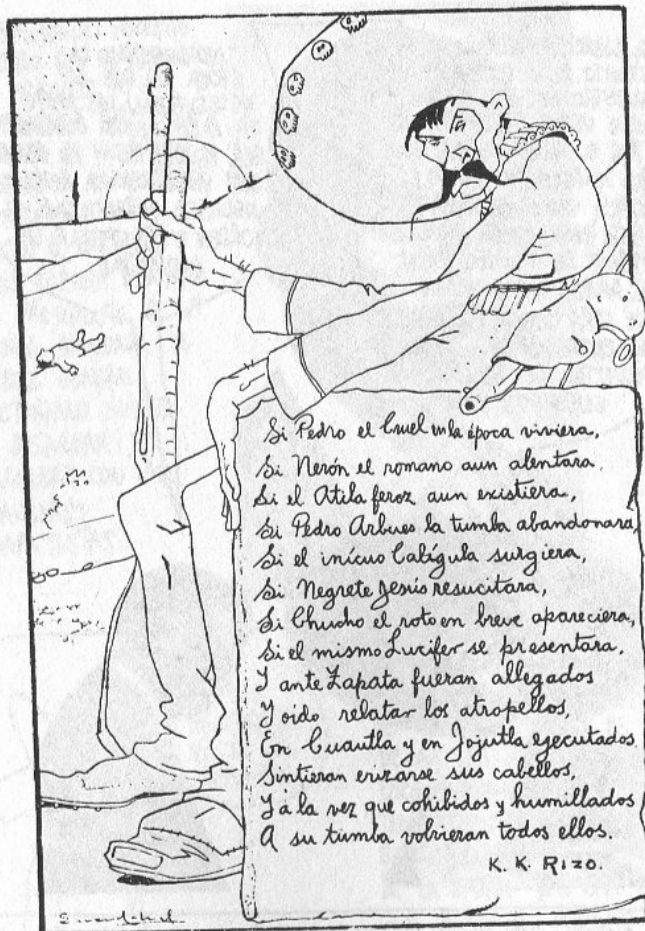 Si Pedro el Cruel en la época viviera,
Si Nerón el romano aun alentara,
Si el Atila feroz aun existiera,
Si Pedro Arbues la tumba abandonara,
Si el inícuo Calígula surgiera,
Si Negrete Jesús resucitara,
Si Chucho el roto en breve apareciera,
Si el mismo Lucifer se presentara,
Y ante Zapata fueran allegados
Y oido relatar los atropellos,
En Cuautla y en Jojutla ejecutados
Sintieran erizarse sus cabellos,
Y á la vez que cohibidos y humillados
A su tumba volvieran todos ellos.
K. K. RIZO.